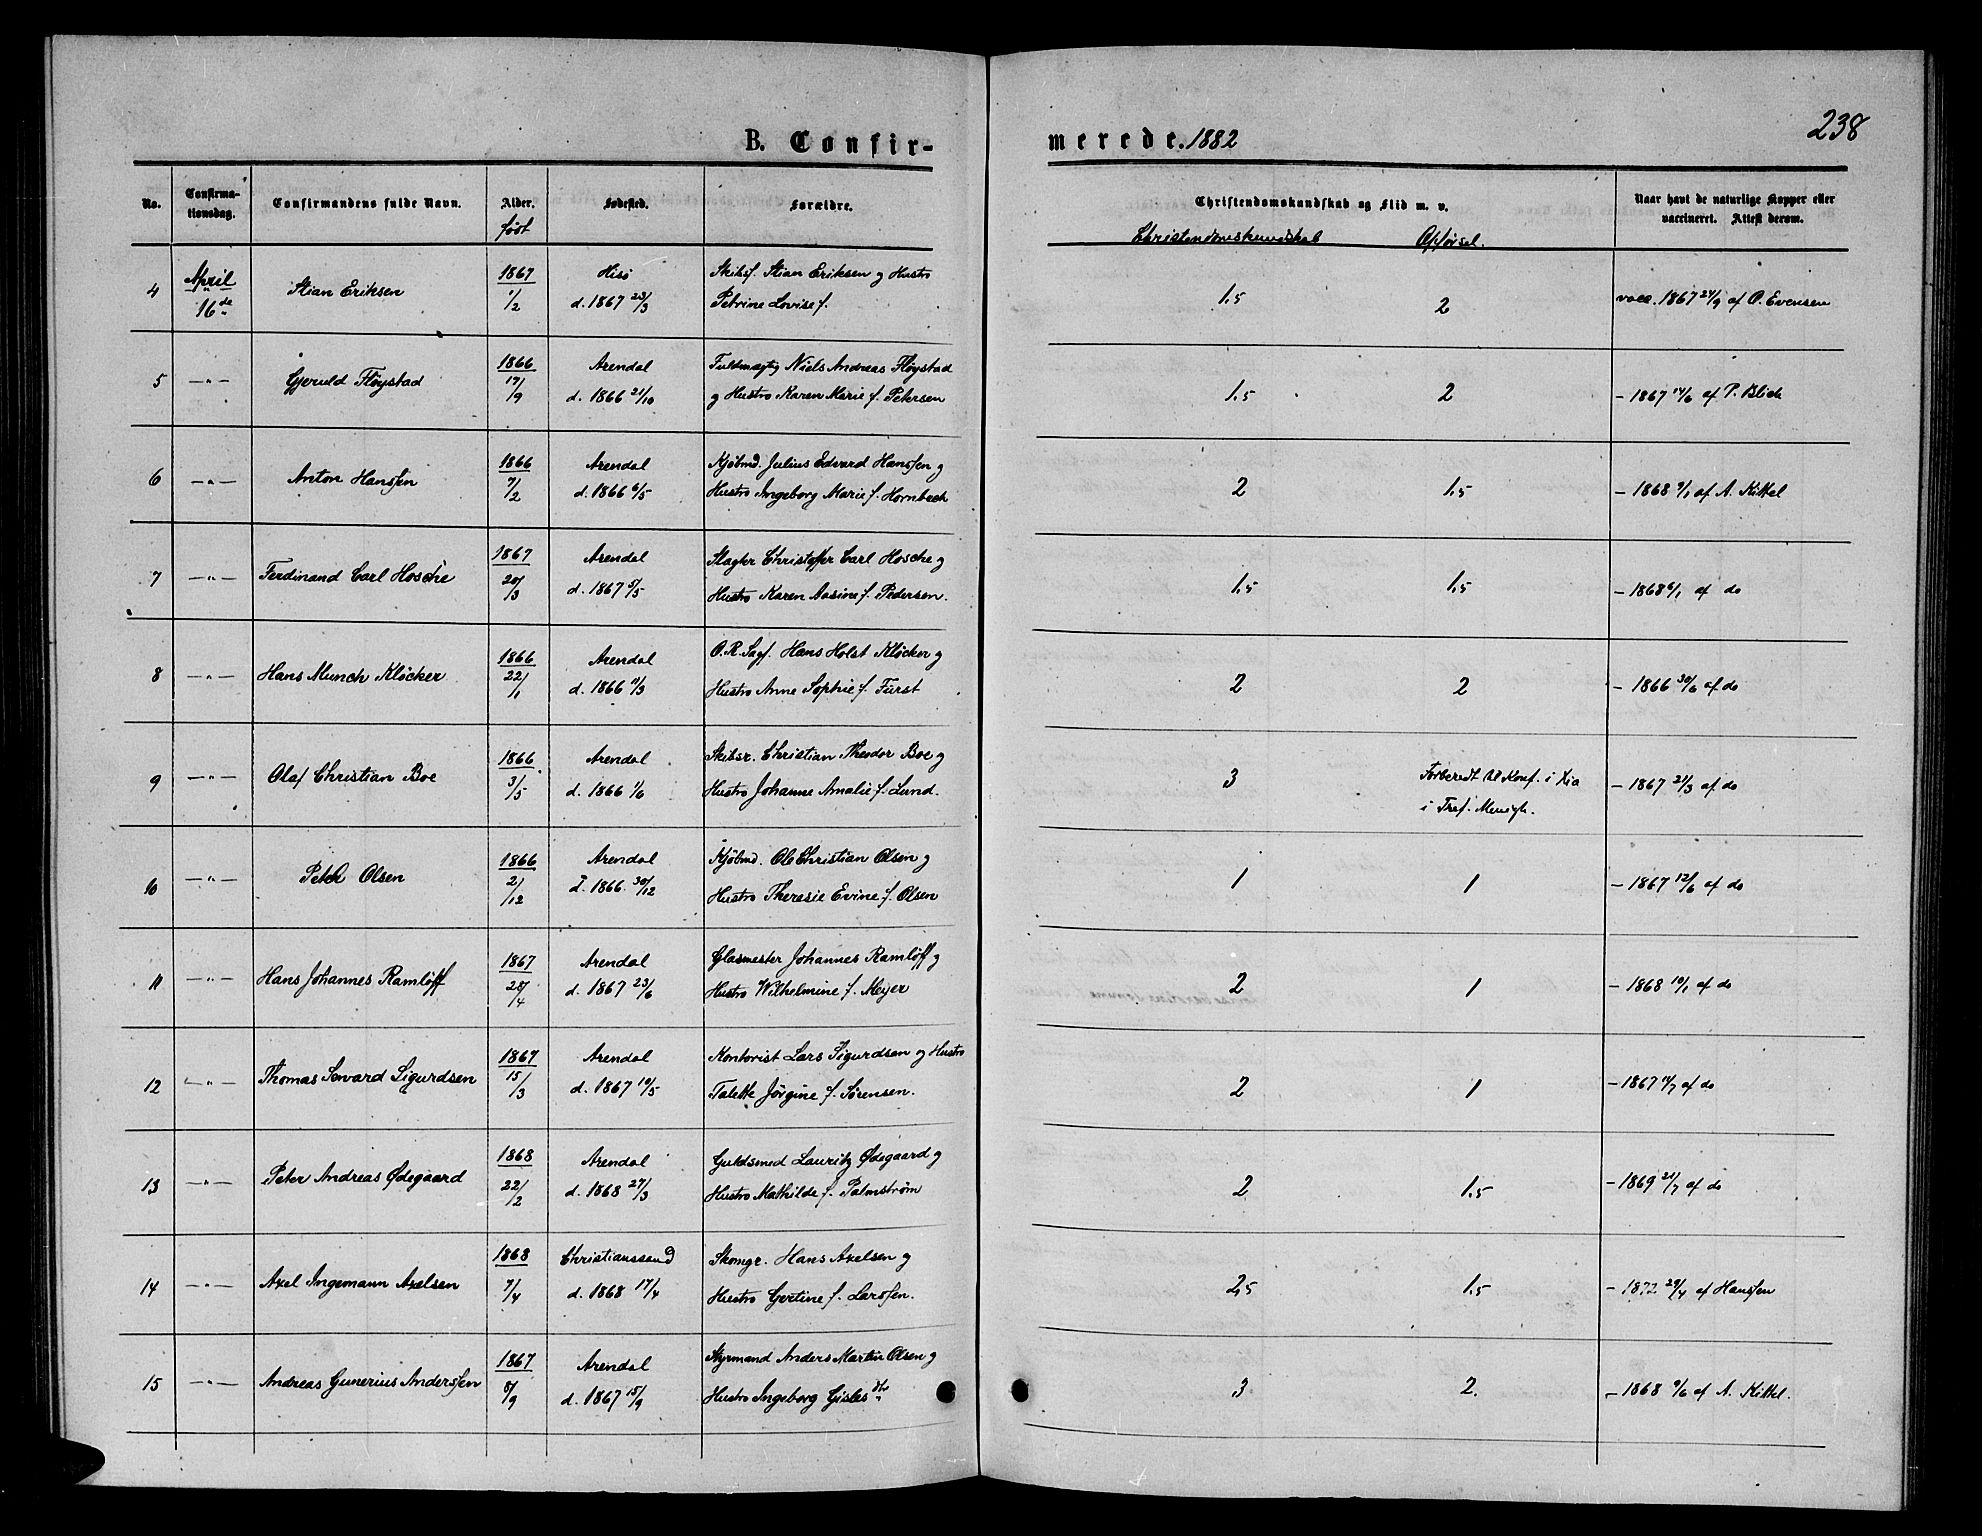 238
B. Confir-
merede. 1882
No.
Confirma-
tionsdag.
Confirmandens fulde Navn.
Alder.
født
Fødested.
Forældre.
Christendomskundskab og Flid m. v.
Christendomskundskab
Opførsel.
Naar havt de naturlige Kopper eller
vaccineret. Attest derom.
4
April
16de
Stian Eriksen
1867
1/2
Hisø
d. 1867 23/3
Skibsf. Stian Eriksen og Hustro
Petrine Lovise f.
1,5
2
vacc. 1867 24/9 af O. Evensen
5
—"—
Gjeruld Fløystad
1866
17/9
Arendal
d. 1866 21/10
Fuldmægtig Niels Andreas Fløystad
og Hustro Karen Marie f. Petersen
1,5
2
- 1867 14/6 af P. Blich
6
—"—
Anton Hanssen
1866
7/2
Arendal
d. 1866 6/5
Kjøbmd. Julius Edvard Hanssen og
Hustro Ingeborg Marie f. Hornbech
2
1,5
- 1868 9/1 af A. Kittel
7
—"—
Ferdinand Carl Hosche
1867
20/3
Arendal
d. 1867 5/5
Slagter Christoffer Carl Hosche og
Hustro Karen Aasine f. Pedersen.
1,5
1,5
- 1868 6/1 af do
8
—"—
Hans Munch Kløcker
1866
22/1
Arendal
d. 1866 11/3
O.R.Sagf. Hans Holst Kløcker og
Hustro Anne Sophie f. Fürst
2
2
- 1866 30/6 af do
9
—"—
Olaf Christian Boe
1866
3/5
Arendal
d. 1866 1/6
Skibsr. Christian Theodor Boe og
Hustro Johanne Amalie f. Lund.
3
Forberedt til Konf. i
i Tref. Menigh.
- 1867 21/3 af do
10
—"—
Peter Olsen
1866
2/12
Arendal
d. 1866. 30/12
Kjøbmd. Ole Christian Olsen og
Hustro Theresie Evine f. Olsen
1
1
- 1867 12/6 af do
11
—"—
Hans Johannes Ramløff
1867
28/4
Arendal
d. 1867 23/6
Glasmester Johannes Ramløff og
Hustro Wilhelmine f. Meyer
2
1
- 1868 10/1 af do
12
—"—
Thomas Seward Sigurdsen
1867
15/3
Arendal
d. 1867 19/5
Kontorist Lars Sigurdsen og Hustro
Talette Jørgine f. Sørensen.
2
1
- 1867 11/7 af do
13
—"—
Peter Andreas Ødegaard
1868
22/2
Arendal
d. 1868 27/3
Guldsmed Lauritz Ødegaard og
Hustro Mathilde f. Palmstrøm
2
1,5
- 1869 21/7 af do
14
—"—
Axel Ingemann Axelsen
1868
7/4
Christianssand
d. 1868 17/4
Skomgr. Hans Axelsen og
Hustro Gertine f. Larssen.
2,5
1,5
- 1872 29/4 af Hanssen
15
—"—
Andreas Gunerius Anderssen
1867
8/9
Arendal
d. 1867 15/9
Styrmand Anders Martin Olsen og
Hustro Ingeborg Gislesdtr
3
2.
- 1868 9/6 af A. Kittel.